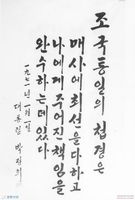 조국통일의 첩경은
매사에 최선을 다하고
나에게 주어진 책임을
완수하는데 있다
대통령 박정희